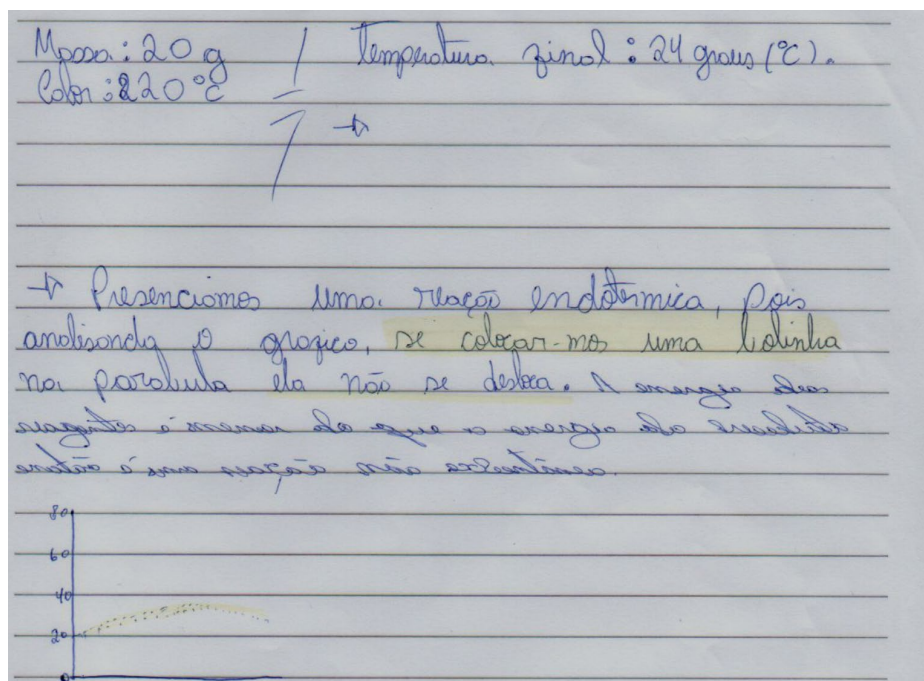 Massa: 20 g / Temperatura final: 24 graus (°C).
Calor: 220°C
→
→ Presenciamos uma reação endotérmica, pois
analisando o grafico, se colocar-mos uma bolinha
na parabula ela não se desloca. A energia dos
reagentes é menor do que a energia do produto
então é uma reação não espontânea.
80
60
40
20
0